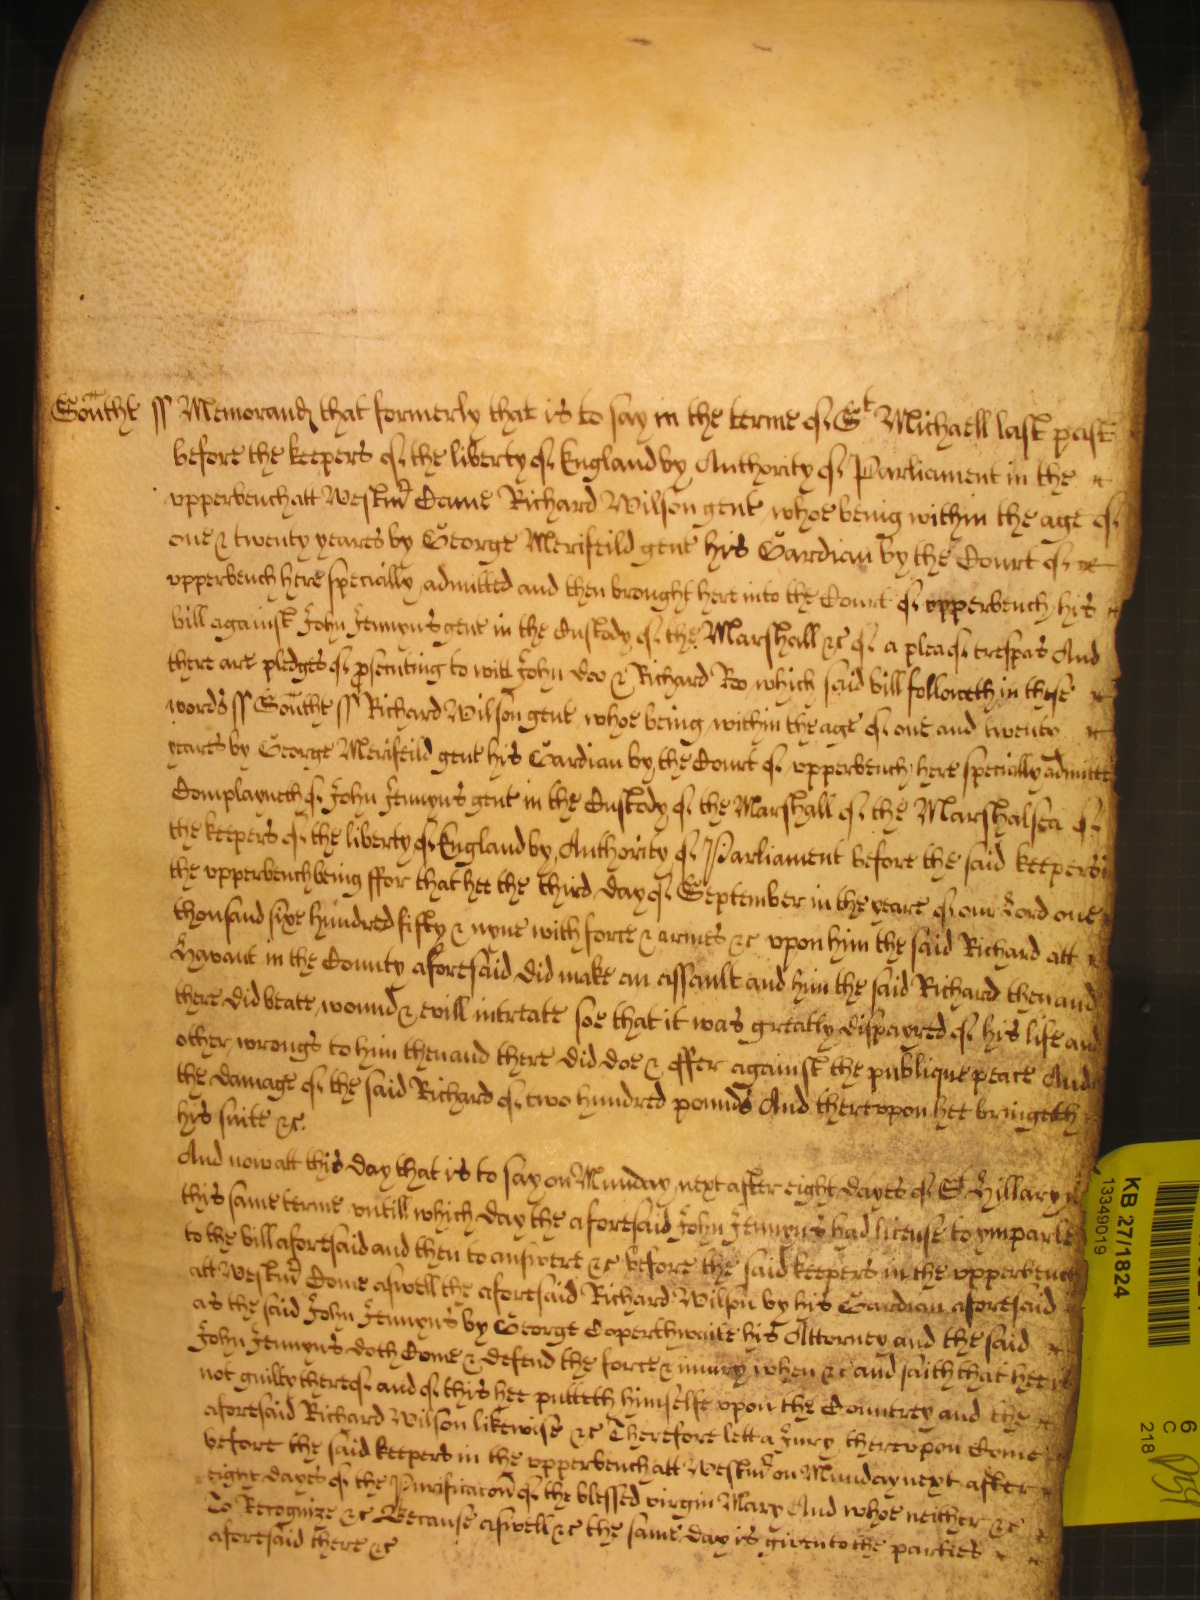 Southt ss Memorand that formerly that is to say in the terme of St Michaell last past
before the keepers of the liberty of England by Authority of Parliament in the
upperbench att Westmr Came Richard Wilson gent whoe being within the age of
one & twenty yeares by George Merifeild gent his Gardian by the Court of
upperbench here specially admitted and then brought here into the Court of upperbench his
bill against John Jennyns gent in the Custody of the Marshall &c of a plea of trespas And
there are pledges of prosecuting to witt John Doo & Richard Roo which said bill followeth in these
words ss Southt ss Richard Wilson gent whoe being within the age of one and twenty
yeares by George Merifeild gent his Gardian by the Court of upperbench here specially admitted
Complayneth of John Jennyns gent in the Custody of the Marshall of the Marshalsea of
the keepers of the liberty of England by Authority of Parliament before the said keepers in
the upperbench being ffor that hee the third day of September in the yeare of our Lord one
thousand sixe hundred fifty & nyne with force & armes &c upon him the said Richard att
Havant in the County aforesaid did make an assault and him the said Richard then and
there did beate wound & evill intreate soe that it was greatly dispayred of his life and
other wrongs to him then and there did doe & offer against the publique peace And
the damage of the said Richard of two hundred pounds And thereupon hee bringeth
his suite &c.
And now att this day that is to say on Munday next after eight dayes of St Hillary
this same terme untill which day the aforesaid John Jennyns had license to imparle
to the bill aforesaid and then to answere &c before the said keepers in the upperbench
att Westmr Come aswell the aforesaid Richard Wilson by his Gardian aforesaid
as the said John Jennyns by George Coperthwaite his Attorney and the said
John Jennyns doth Come & defend the force & iniury when &c and saith that hee is
not guilty thereof and of this hee putteth himselfe upon the Countrey and the
aforesaid Richard Wilson likewise &c Therefore lett a Jury thereupon Come
before the said keepers in the upperbench att Westmr on Munday next after
eight dayes of the Purificacon of the blessed virgin Mary And whoe neither &c
To Recognize &c Because aswell &c the same day is given to the parties
aforesaid there &c
KB 27/1824
13349019
6
C
218